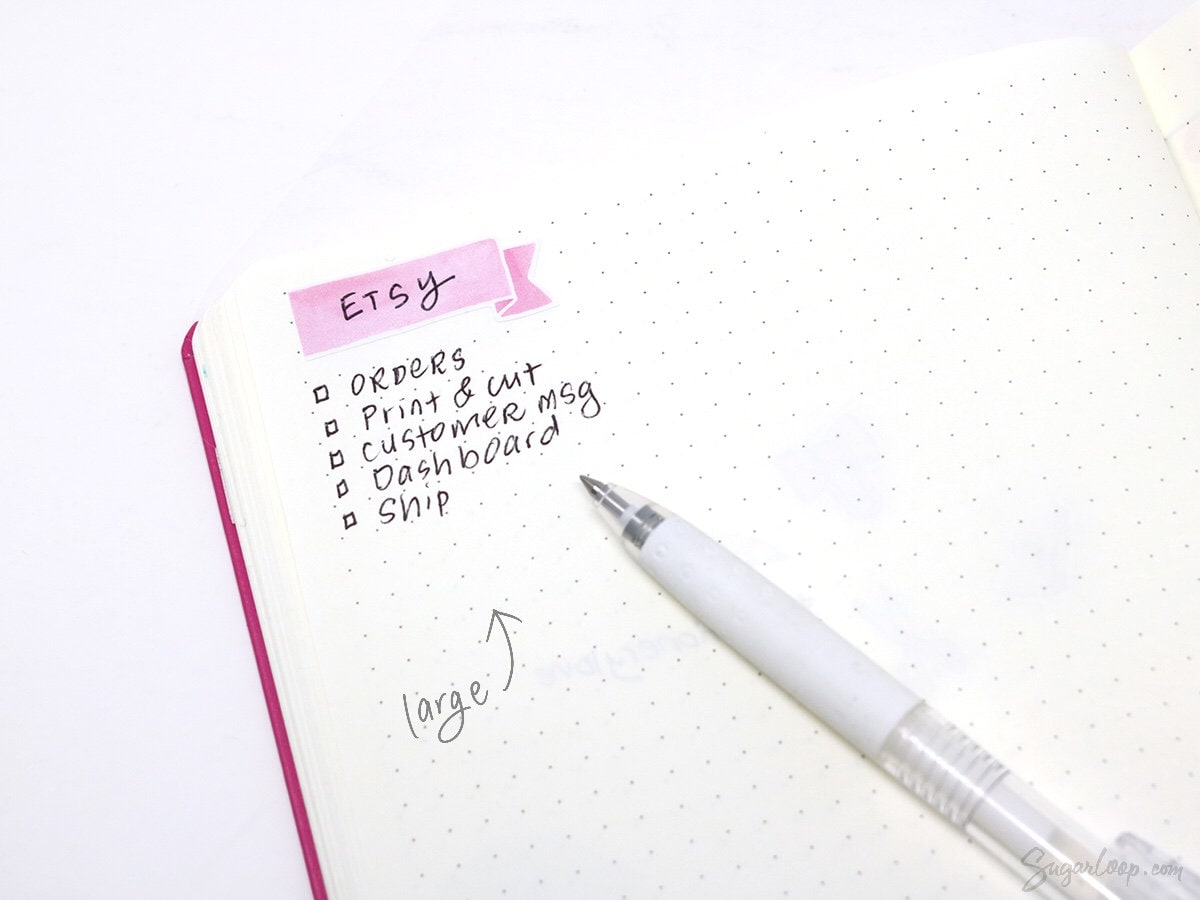 ETSY
ORDERS
Print & cut
CUSTOMER msg
Dashboard
Ship
large
Sugarloop.com